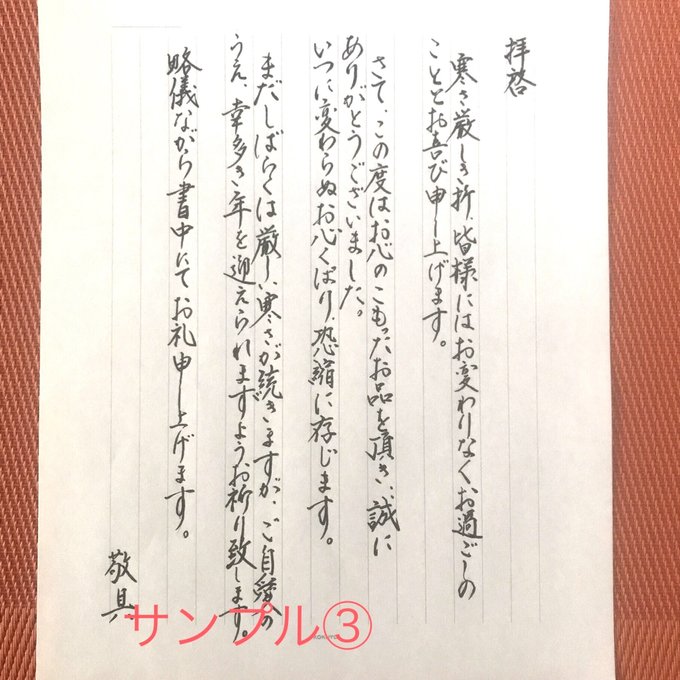 拝啓
寒さ厳しき折、皆様にはお変わりなくお過ごしの
こととお喜び申し上げます。
さて、この度はお心のこもったお品を頂き、誠に
ありがとうございました。
いつに変わらぬお心くばり、恐縮に存じます。
まだしばらくは厳しい寒さが続きますが、ご自愛の
うえ、幸多き年を迎えられますようお祈り致します。
略儀ながら書中にてお礼申し上げます。
敬具
サンプル③
KOKUYO